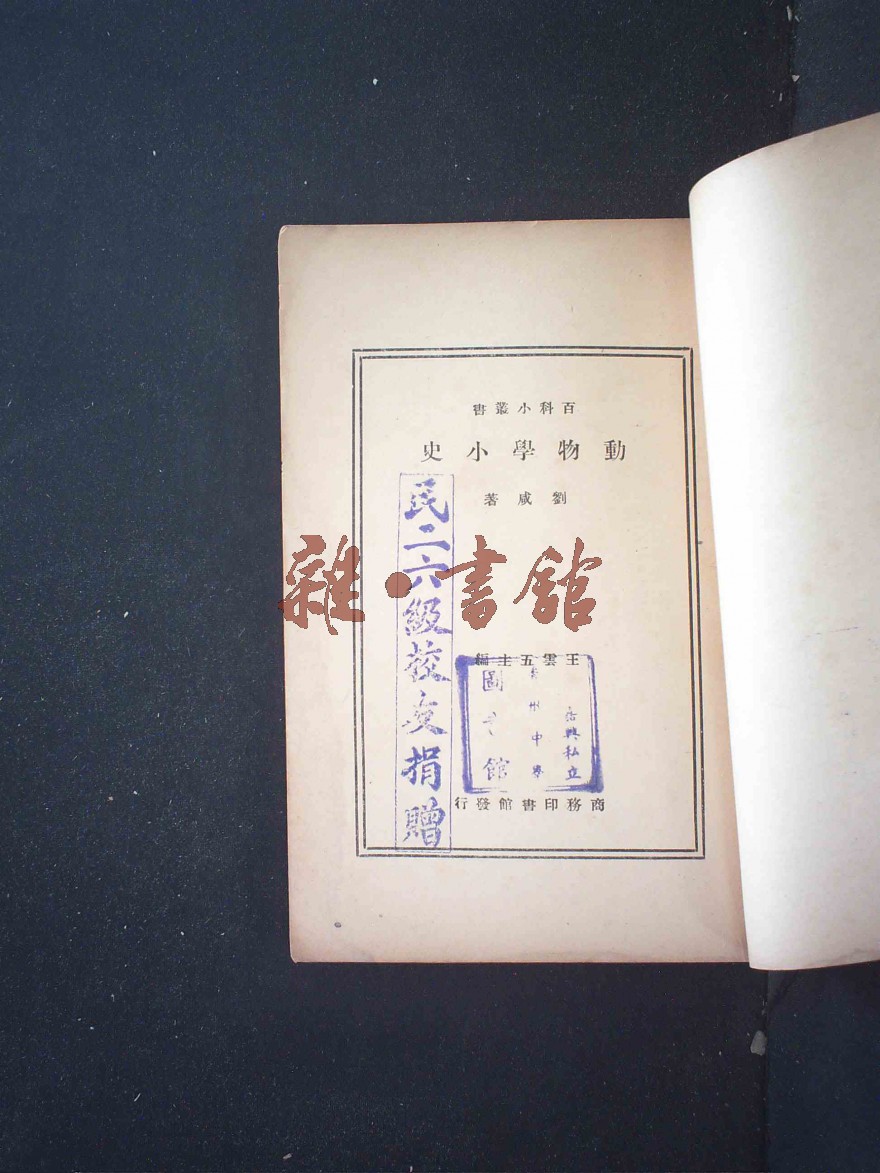 百科小叢書
動物學小史
劉咸著
王雲五主編
商務印書館發行
民二六級校友捐贈
私立
州中學
圖書館
雜·書館